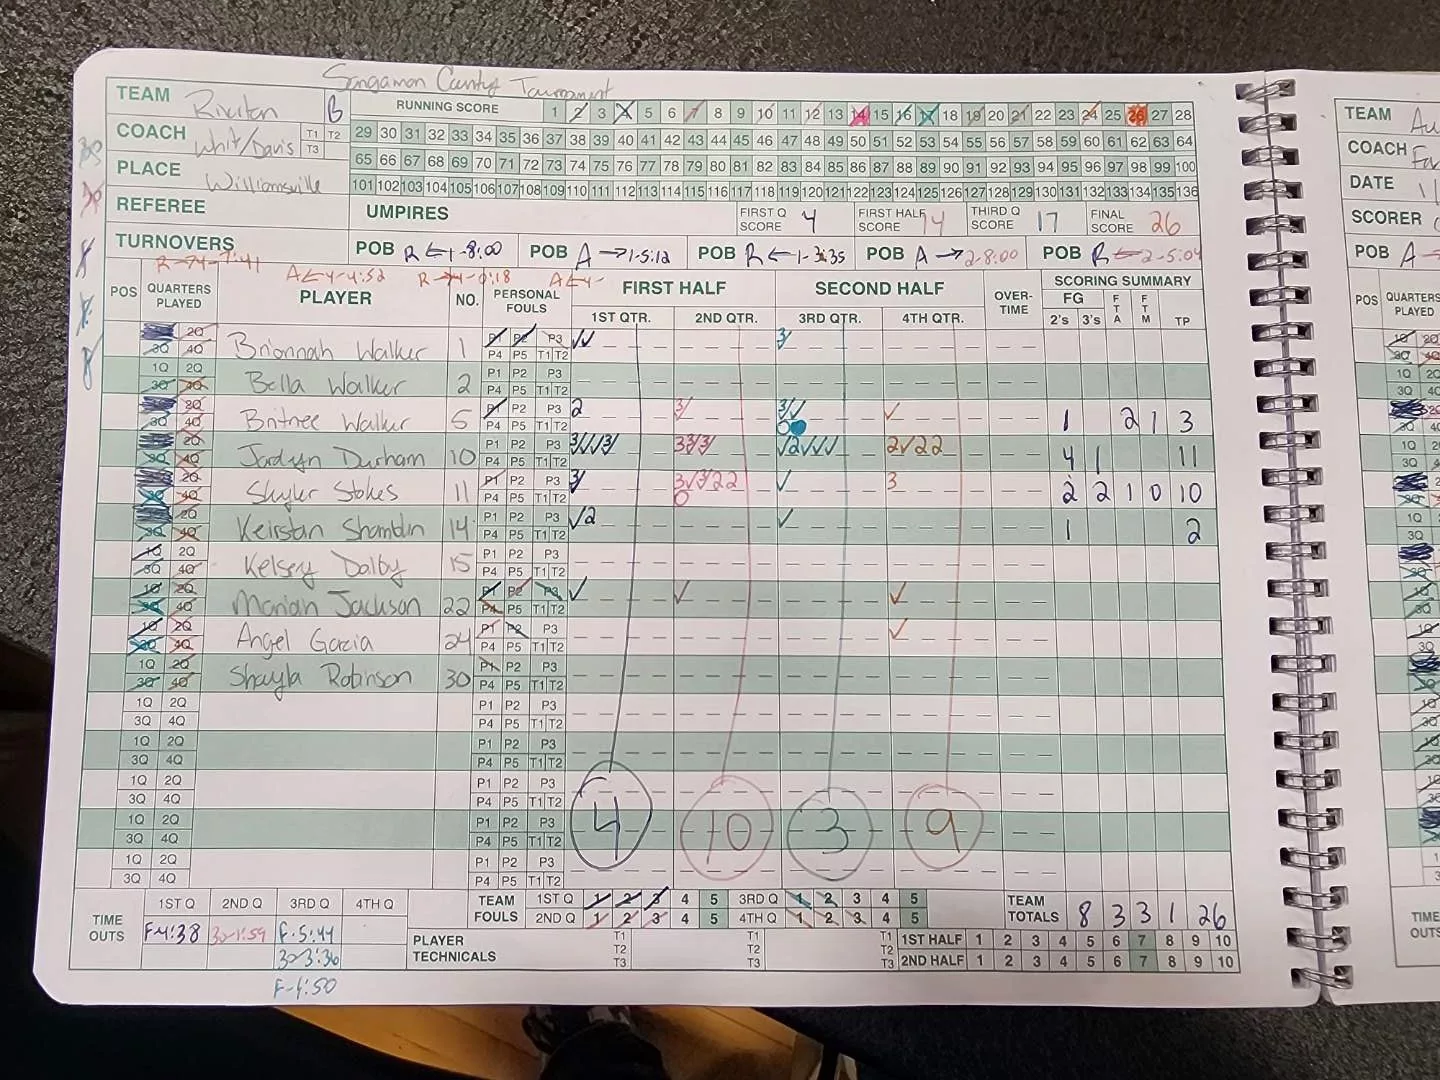 Sangamon County Tournament
TEAM Riverton B
RUNNING SCORE 1 2 3 4 5 6 7 8 9 10 11 12 13 14 15 16 17 18 19 20 21 22 23 24 25 26 27 28
COACH Whit/Davis T1 T2 T3
29 30 31 32 33 34 35 36 37 38 39 40 41 42 43 44 45 46 47 48 49 50 51 52 53 54 55 56 57 58 59 60 61 62 63 64
65 66 67 68 69 70 71 72 73 74 75 76 77 78 79 80 81 82 83 84 85 86 87 88 89 90 91 92 93 94 95 96 97 98 99 100
PLACE Williamsville
101 102 103 104 105 106 107 108 109 110 111 112 113 114 115 116 117 118 119 120 121 122 123 124 125 126 127 128 129 130 131 132 133 134 135 136
REFEREE UMPIRES FIRST Q SCORE 4 FIRST HALF SCORE 14 THIRD Q SCORE 17 FINAL SCORE 26
TURNOVERS POB R ← 1-8:00 POB A → 1-5:12 POB R ← 1-3:35 POB A → 2-8:00 POB R ← 2-5:04
R → 4-7:41 A ← 4-4:52 R → 4-0:18 A ← 4-
POS QUARTERS PLAYED PLAYER NO. PERSONAL FOULS FIRST HALF SECOND HALF OVER-TIME SCORING SUMMARY
1ST QTR. 2ND QTR. 3RD QTR. 4TH QTR. FG 2's 3's FTA FTM TP
2Q Brionnah Walker 1 P1 P2 P3 3
3Q 4Q P4 P5 T1 T2
1Q 2Q Bella Walker 2 P1 P2 P3
3Q 4Q P4 P5 T1 T2
2Q Britnee Walker 5 P1 P2 P3 2 3 3 ✓ 1 2 1 3
3Q 4Q P4 P5 T1 T2
2Q Jadyn Durham 10 P1 P2 P3 4 1 11
3Q 4Q P4 P5 T1 T2
2Q Skyler Stokes 11 P1 P2 P3 3 ✓ 3 2 2 1 0 10
3Q 4Q P4 P5 T1 T2
2Q Keirstan Shamblin 14 P1 P2 P3 ✓2 ✓ 1 2
3Q 4Q P4 P5 T1 T2
1Q 2Q Kelsey Dalby 15 P1 P2 P3
3Q 4Q P4 P5 T1 T2
1Q 2Q Mariah Jackson 22 P1 P2 P3 ✓ ✓ ✓
3Q 4Q P4 P5 T1 T2
1Q 2Q Angel Garcia 24 P1 P2 P3 ✓
3Q 4Q P4 P5 T1 T2
1Q 2Q Shayla Robinson 30 P1 P2 P3
3Q 4Q P4 P5 T1 T2
1Q 2Q P1 P2 P3
3Q 4Q P4 P5 T1 T2
1Q 2Q P1 P2 P3
3Q 4Q P4 P5 T1 T2
1Q 2Q P1 P2 P3
3Q 4Q P4 P5 T1 T2
1Q 2Q P1 P2 P3 4 10 3 9
3Q 4Q P4 P5 T1 T2
1Q 2Q P1 P2 P3
3Q 4Q P4 P5 T1 T2
TIME OUTS 1ST Q 2ND Q 3RD Q 4TH Q
F-4:38 30-1:59 F-5:44
30-3:36
F-4:50
TEAM FOULS 1ST Q 1 2 3 4 5 3RD Q 1 2 3 4 5 TEAM TOTALS 8 3 3 1 26
2ND Q 1 2 3 4 5 4TH Q 1 2 3 4 5
PLAYER TECHNICALS T1 T2 T3 T1 T2 T3 T1 T2 T3
1ST HALF 1 2 3 4 5 6 7 8 9 10
2ND HALF 1 2 3 4 5 6 7 8 9 10
TEAM Au
COACH
DATE
SCORER
POB A
POS QUARTERS PLAYED
TIME OUTS